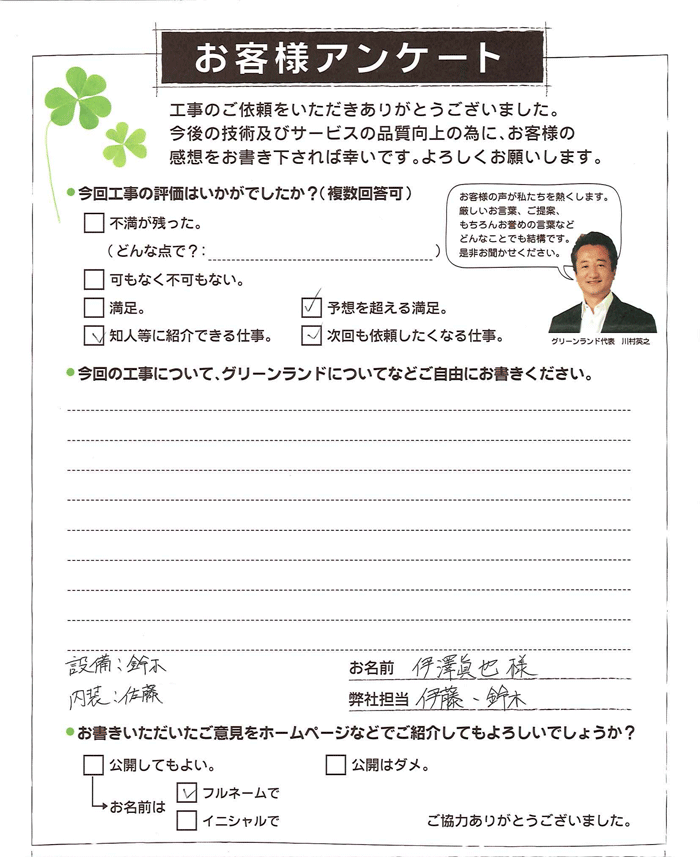 お客様アンケート
工事のご依頼をいただきありがとうございました。
今後の技術及びサービスの品質向上の為に、お客様の
感想をお書き下されば幸いです。よろしくお願いします。
今回工事の評価はいかがでしたか?(複数回答可)
不満が残った。
(どんな点で?: )
可もなく不可もない。
満足。 ✓ 予想を超える満足。
✓ 知人等に紹介できる仕事。 ✓ 次回も依頼したくなる仕事。
お客様の声が私たちを熱くします。
厳しいお言葉、ご提案、
もちろんお誉めの言葉など
どんなことでも結構です。
是非お聞かせください。
グリーンランド代表 川村英之
今回の工事について、グリーンランドについてなどご自由にお書きください。
設備:鈴木
内装:佐藤
お名前 伊澤眞也 様
弊社担当 伊藤、鈴木
お書きいただいたご意見をホームページなどでご紹介してもよろしいでしょうか?
公開してもよい。 公開はダメ。
お名前は ✓ フルネームで
イニシャルで
ご協力ありがとうございました。